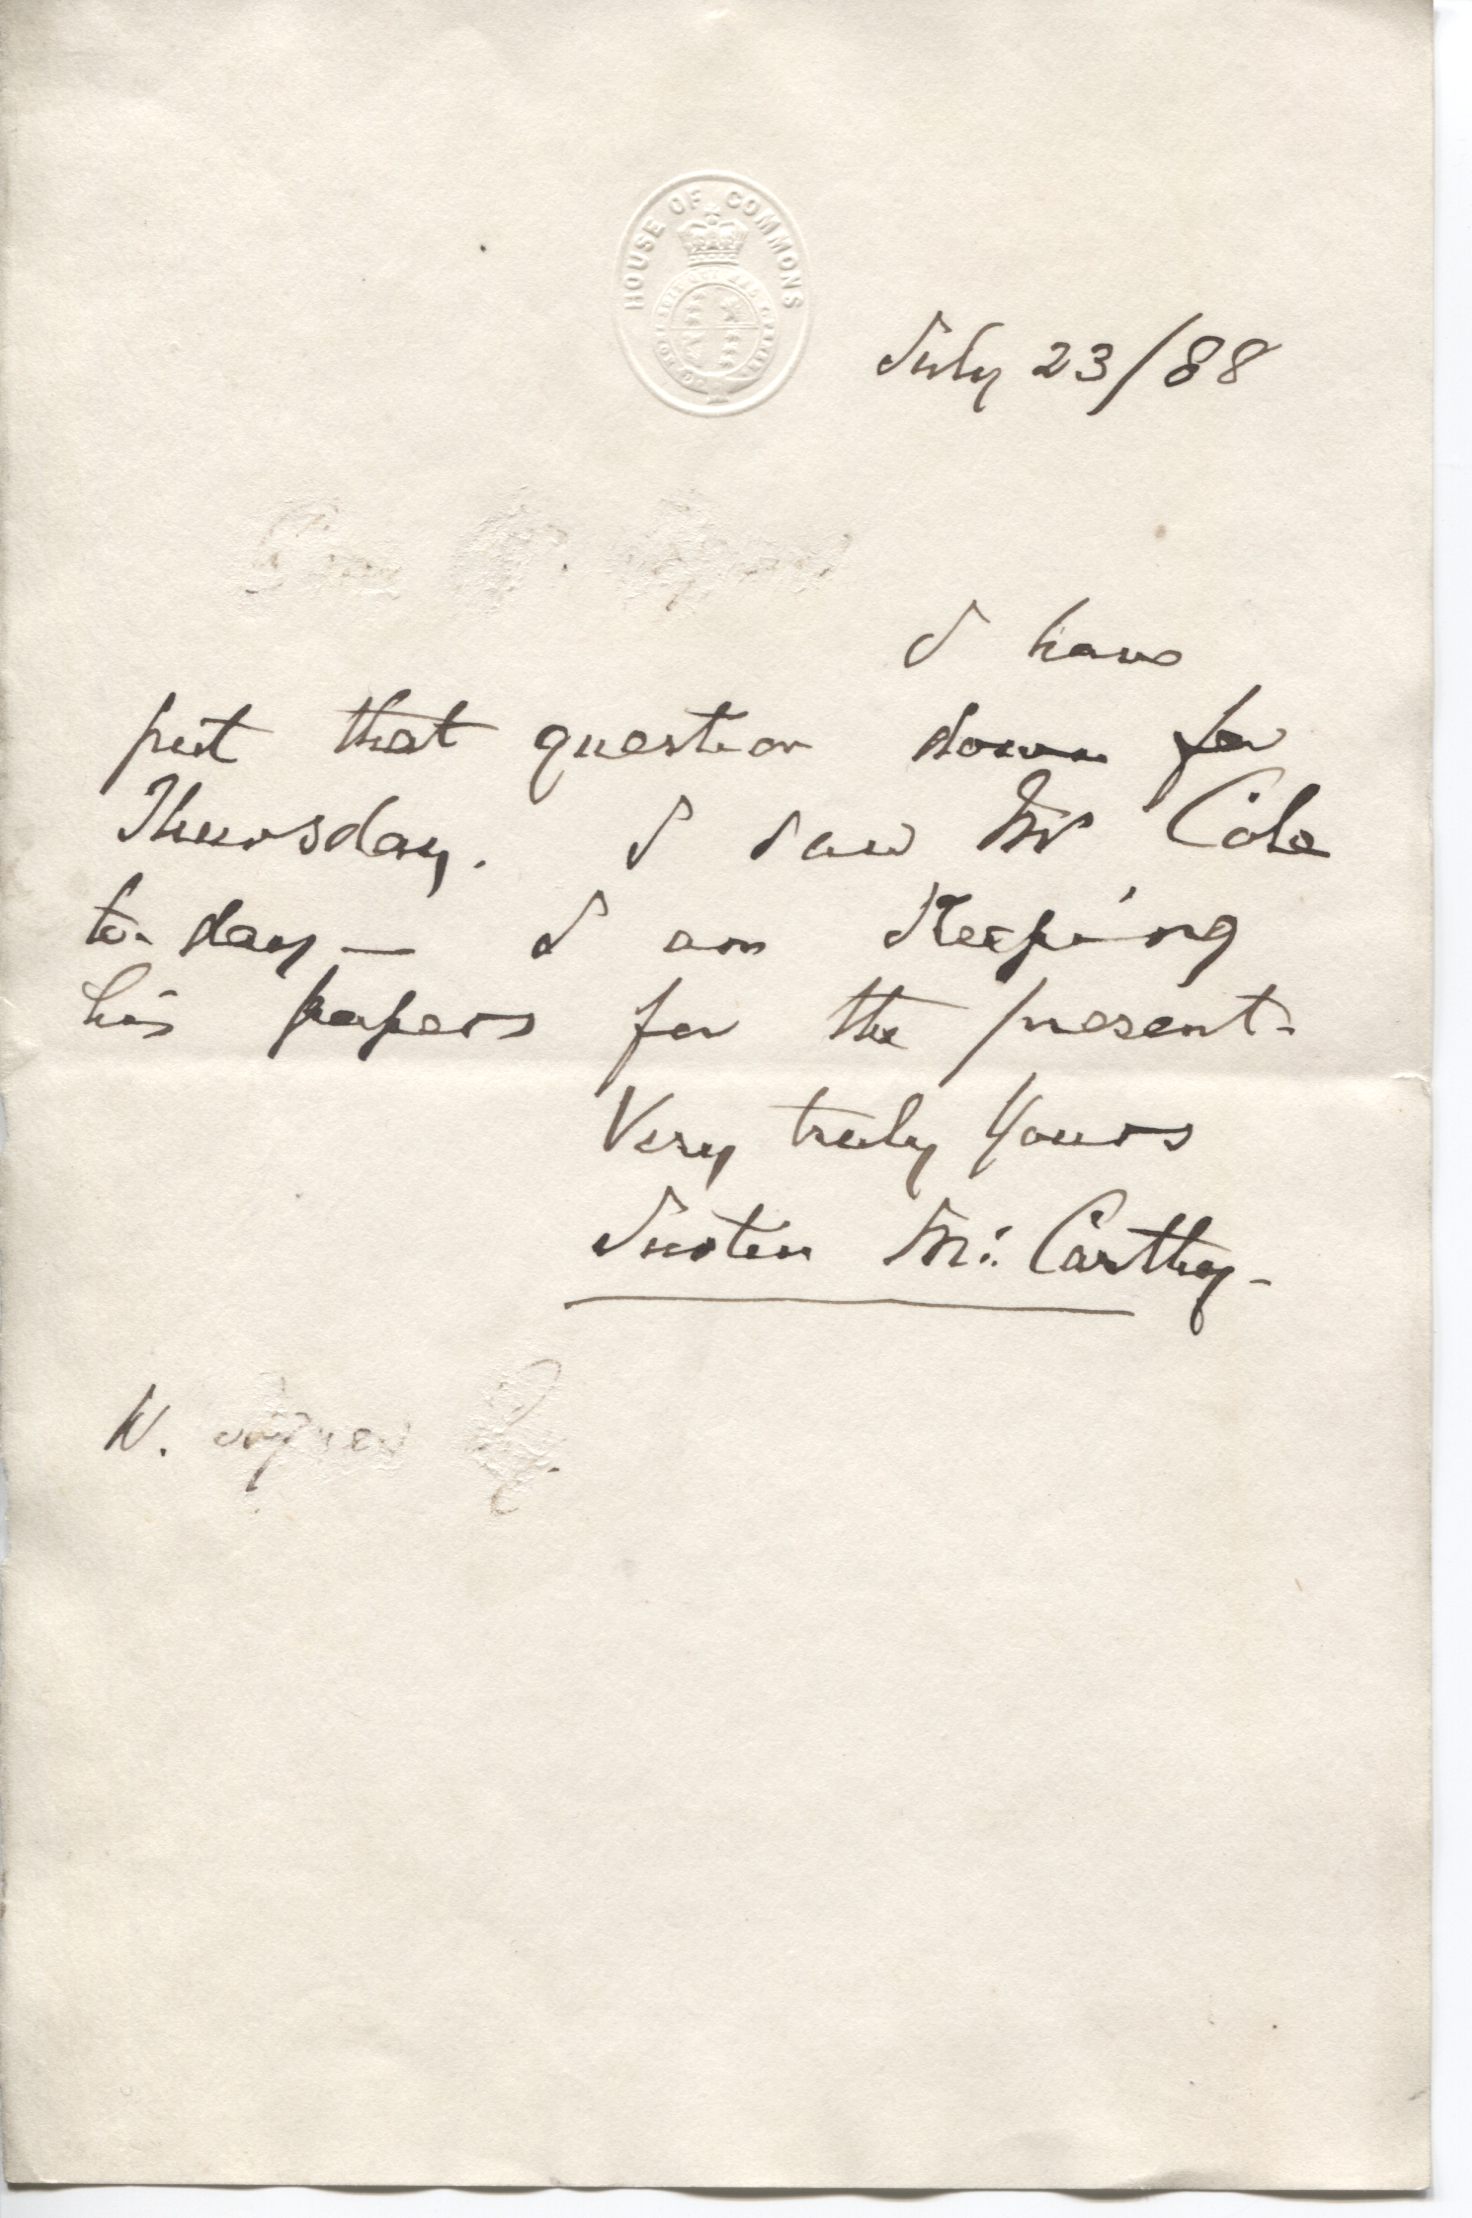 HOUSE OF COMMONS
July 23/88
I have
put that question down for
Thursday. I saw Mr Cole
to-day — I am keeping
his papers for the present-
Very truly Yours
Justin Mc: Carthy-
W.